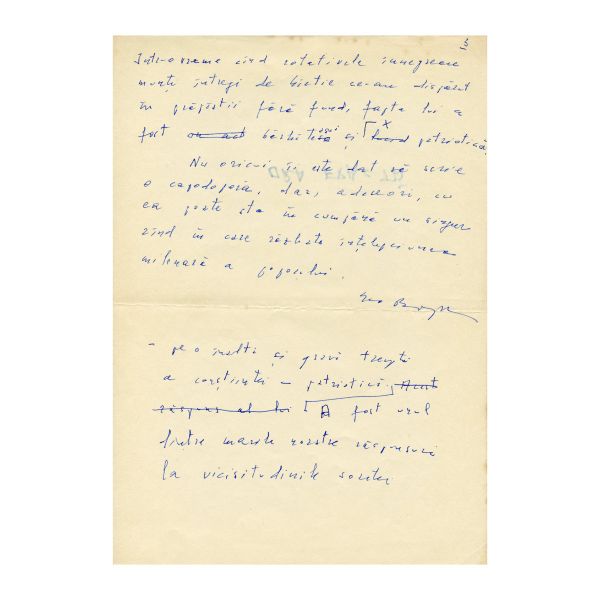 3
Într-o vreme cînd rotativele înnegreau
munți întregi de hîrtie ce-au dispărut
în prăpăstii fără fund, fapta lui a
fost un act bărbătească și x patriotică.
Nu oricui îi este dat să scrie
o capodoperă, dar, adeseori, cu
ea poate sta în cumpănă un singur
rînd în care răzbate înțelepciunea
milenară a poporului.
Geo Bogza
- pe o înaltă și gravă treaptă
a conștiinței - patriotică. Acest
răspuns al lui A fost unul
dintre marile noastre răspunsuri
la vicisitudinile soartei